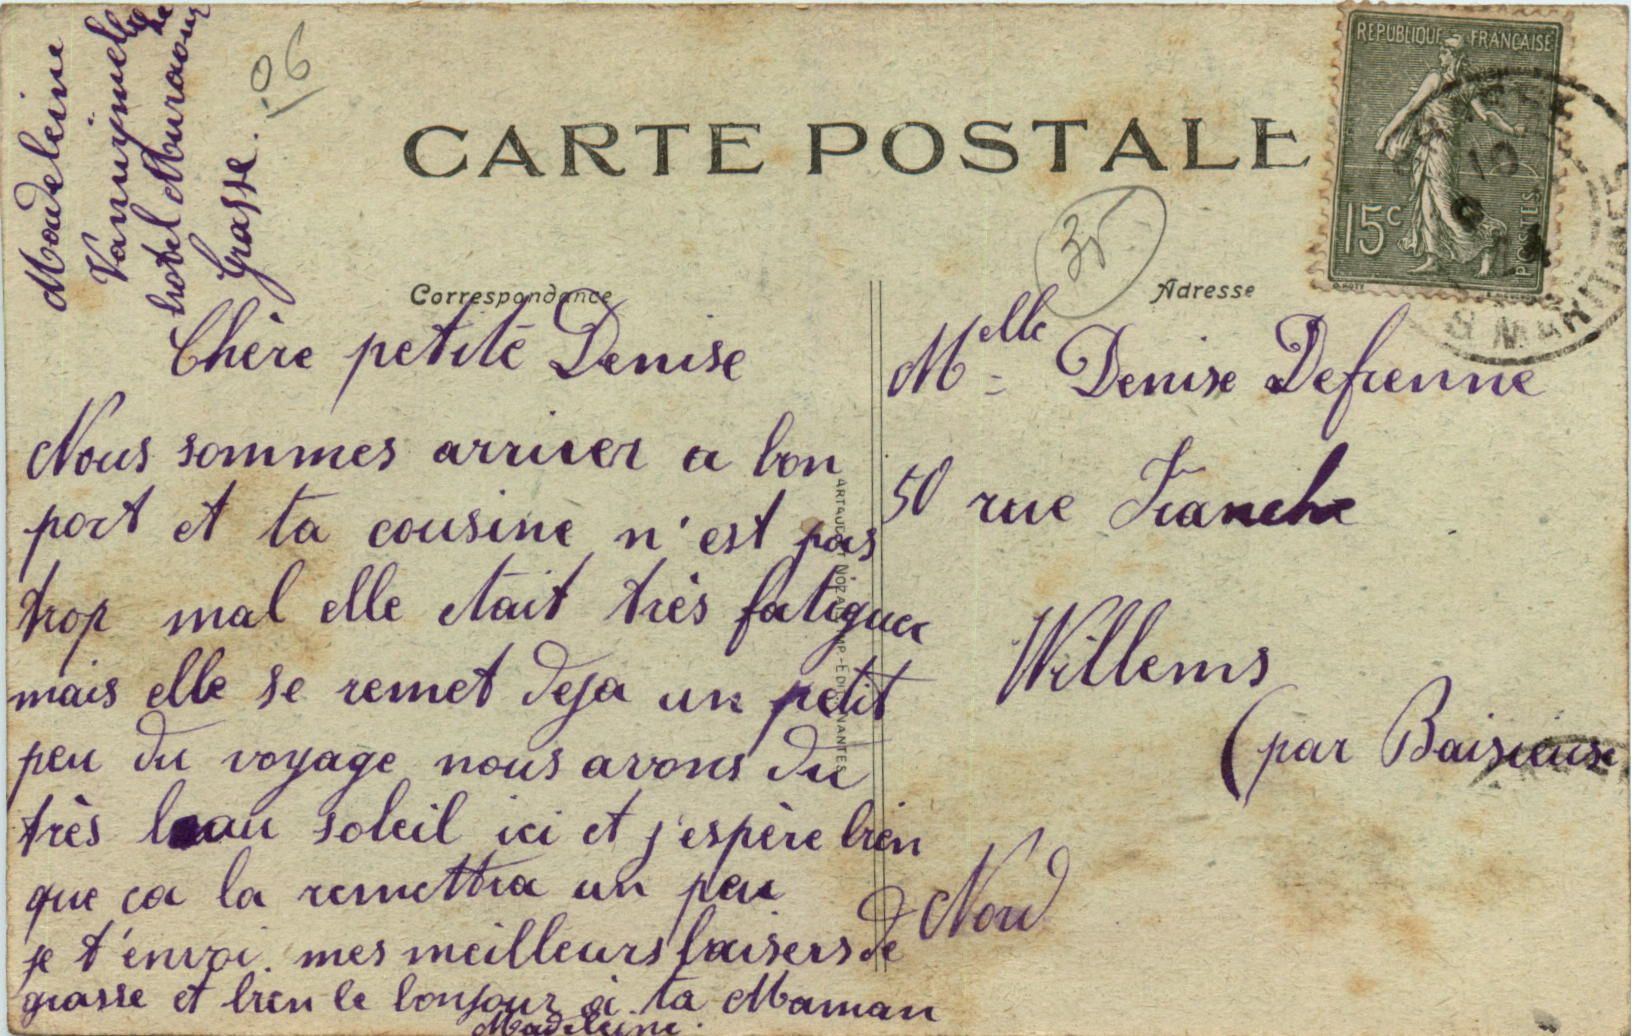 Madeleine
hotel
Grasse.
06
CARTE POSTALE
REPUBLIQUE FRANÇAISE
15c
POSTES
35
Correspondance
Adresse
Chère petite Denise
Nous sommes arriver a bon
port et ta cousine n'est pas
trop mal elle était très fatiguer
mais elle se remet deja un petit
peu du voyage nous avons du
très beau soleil ici et j'espère bien
que ca la remettra un peu
je t'envoi mes meilleurs baisers de
grasse et bien le bonjour à ta Maman
Madeleine.
Melle Denise Defrenne
50 rue Franche
Willems
(par Baisieuse
Nord
MARITIMES